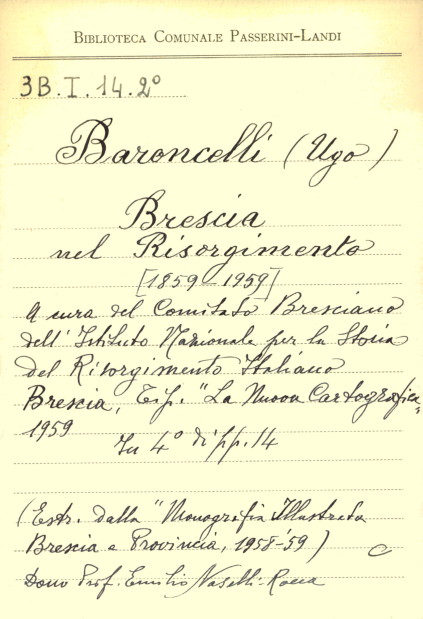 BIBLIOTECA COMUNALE PASSERINI-LANDI
3B.I.14.2º
Baroncelli (Ugo)
Brescia
nel Risorgimento
[1859-1959]
A cura del Comitato Bresciano
dell'Istituto Nazionale per la Storia
del Risorgimento Italiano
Brescia, Tip. "La Nuova Cartografica"
1959
In 4º di pp. 14
(Estr. dalla "Monografia Illustrata
Brescia e Provincia, 1958-59)
C
Dono Prof. Emilio Nasalli-Rocca